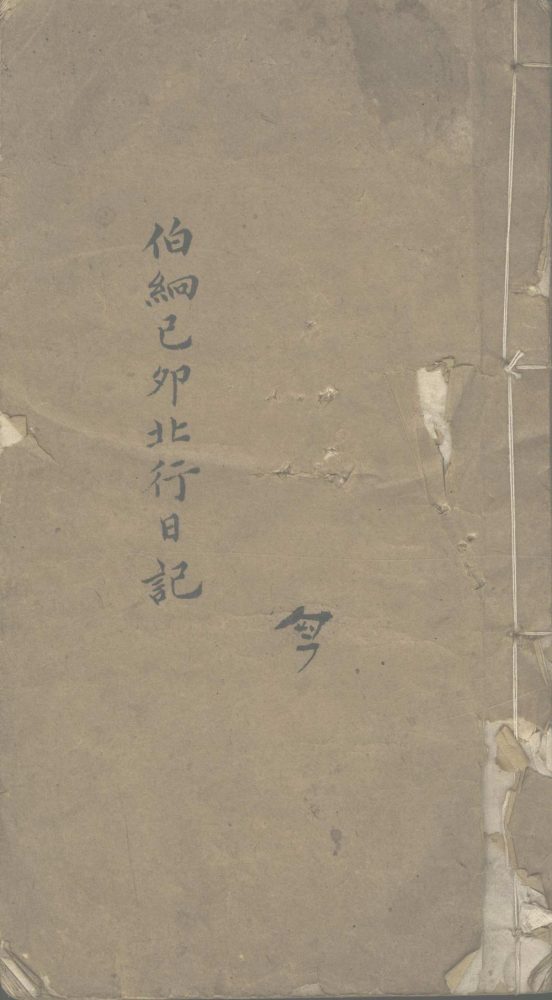 伯絅己卯北行日記